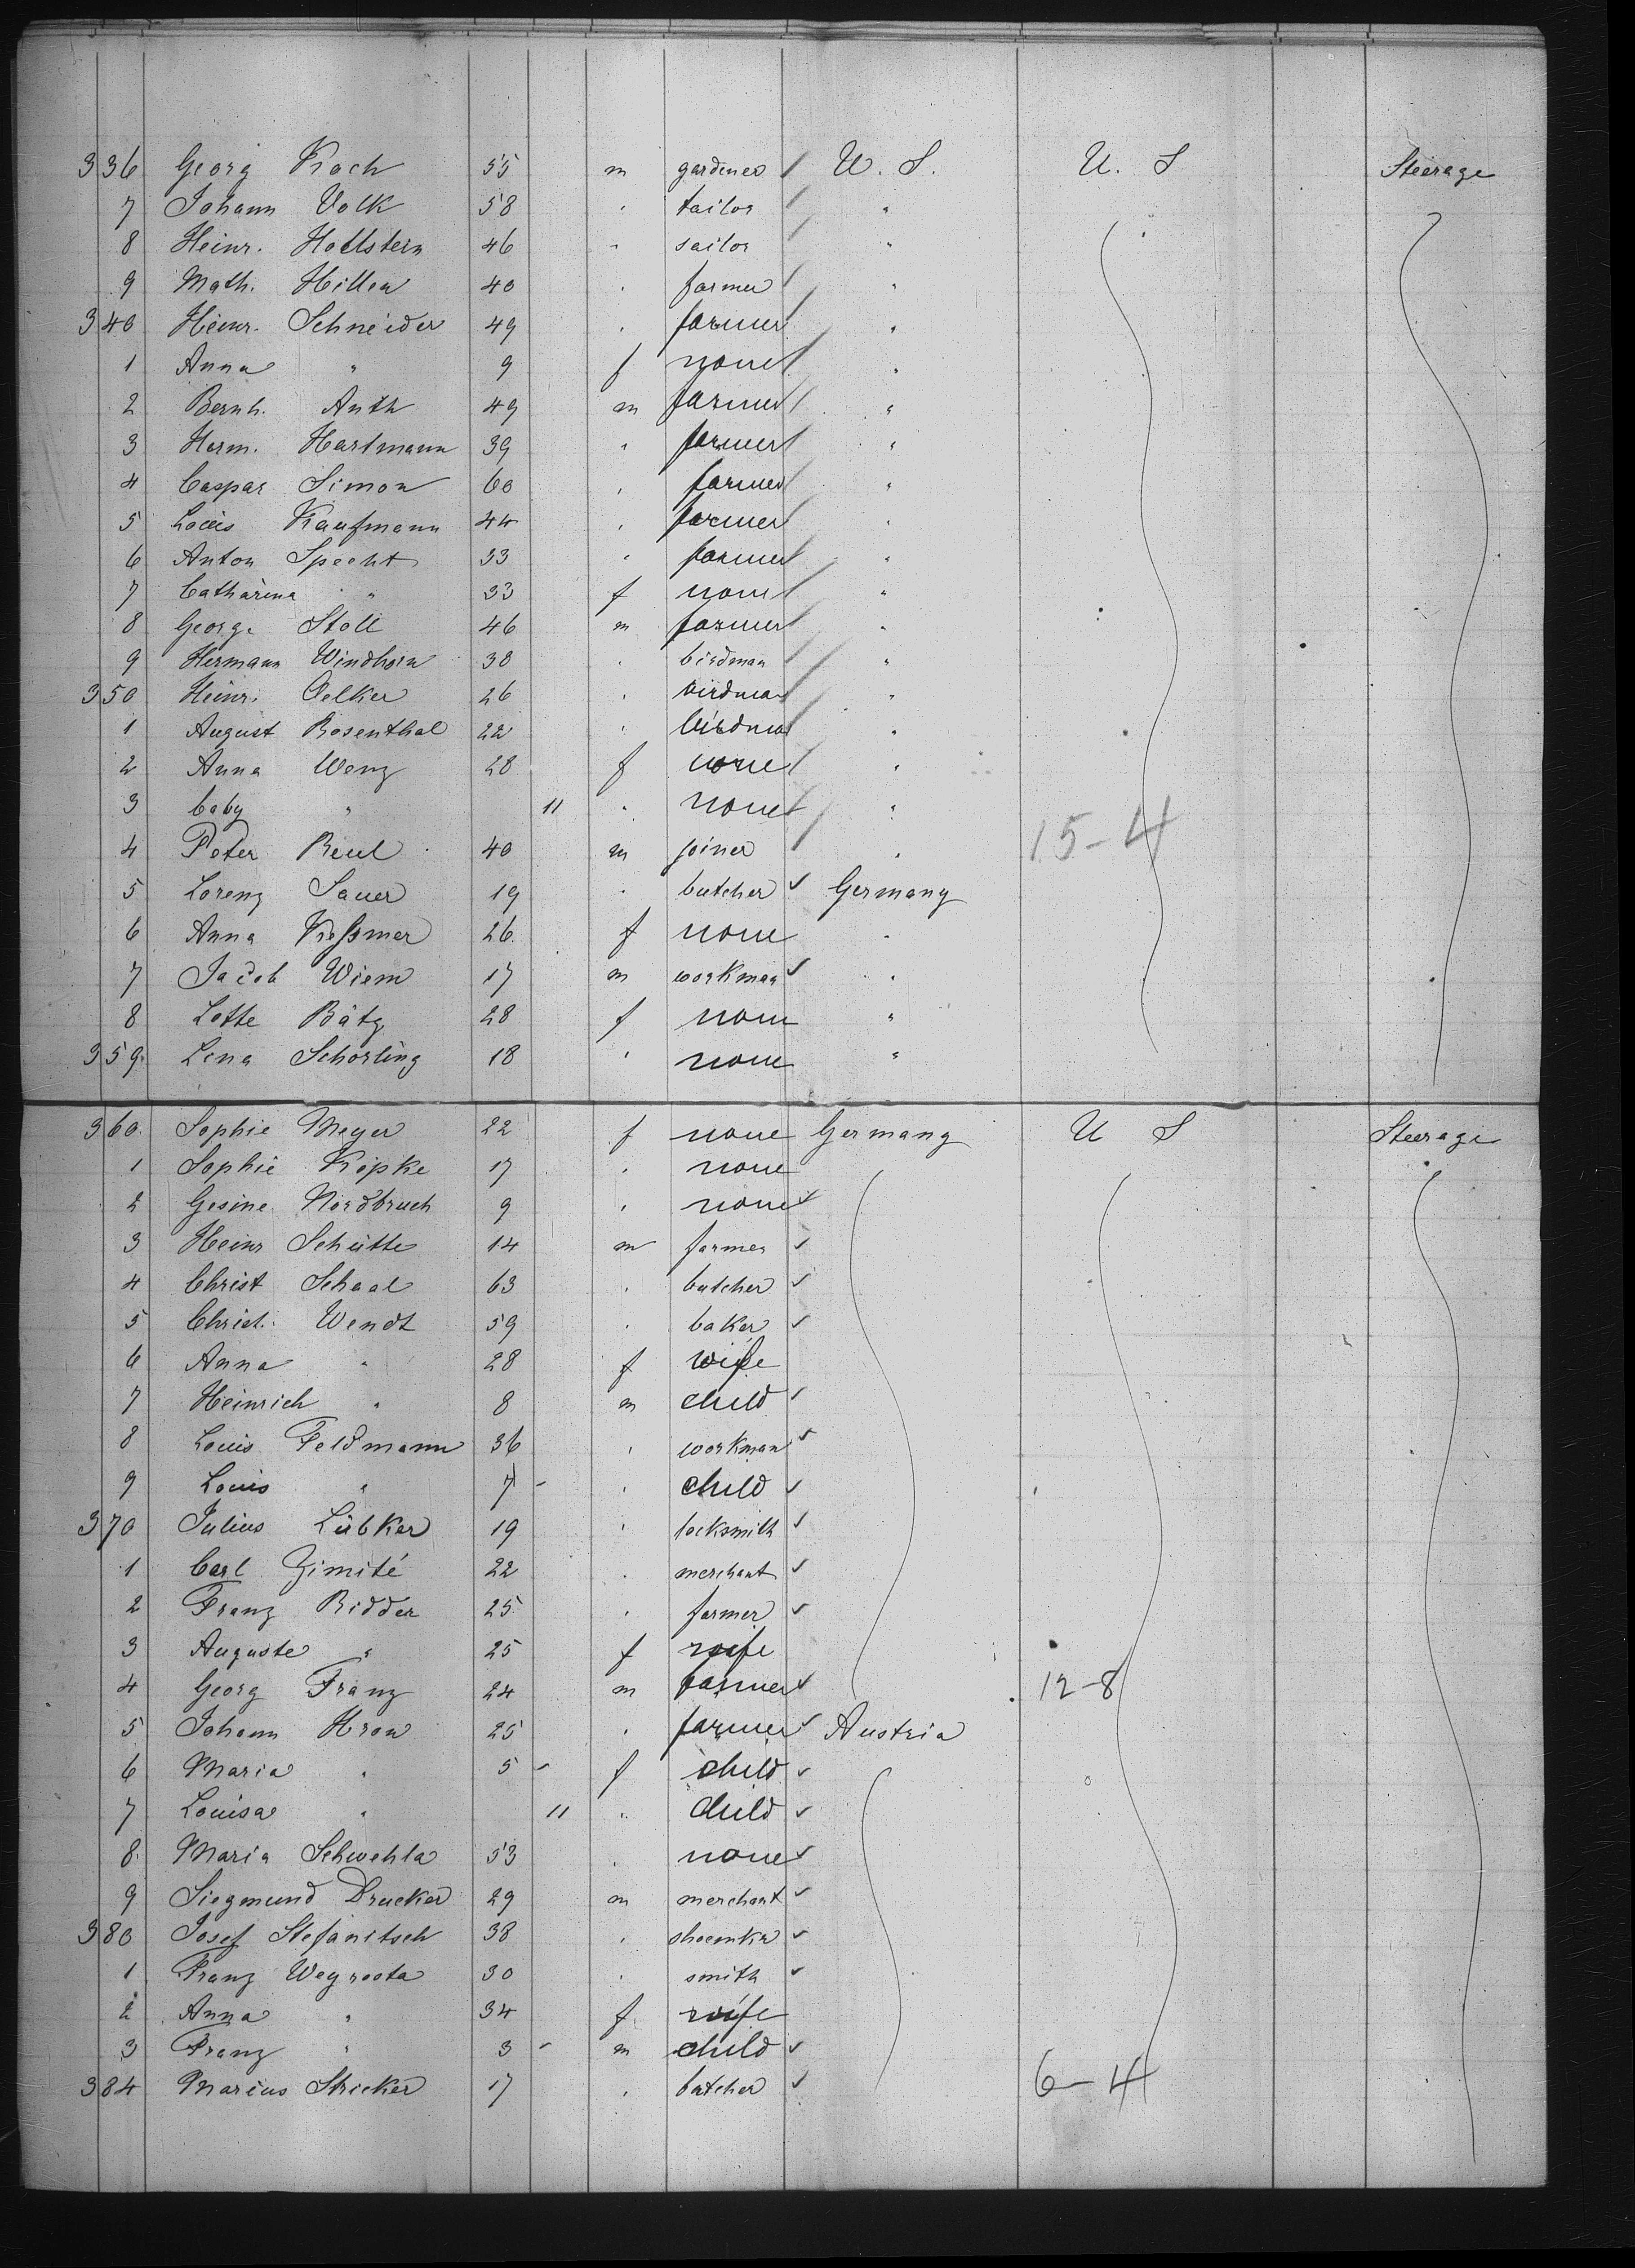 336 Georg Koch 55 m gardener U. S. U. S Steerage
7 Johann Volk 58 " tailor "
8 Heinr. Hollstein 46 " sailor "
9 Math. Hillen 40 " farmer "
340 Heinr. Schneider 49 " farmer "
1 Anna " 9 f none "
2 Bernh. Anth 49 m farmer "
3 Herm. Hartmann 39 " farmer "
4 Caspar Simon 60 " farmer "
5 Louis Kaufmann 44 " farmer "
6 Anton Specht 33 " farmer "
7 Catharina " 33 f none "
8 George Stoll 46 m farmer "
9 Hermann Windhorn 38 " birdman "
350 Heinr. Oelker 26 " birdman "
1 August Rosenthal 22 " birdman "
2 Anna Wenz 28 f none "
3 baby " 11 " none "
4 Peter Reul 40 m joiner " 15-4
5 Lorenz Sauer 19 " butcher Germany
6 Anna 26 f none "
7 Jacob Wiem 17 m workman "
8 Lotte Bätz 28 f none "
359 Lena Schorling 18 " none "
360 Sophie Meyer 22 f none Germany U S Steerage
1 Sophie Köpke 17 " none
2 Gesine Nordbruch 9 " none
3 Heinr Schütte 14 m farmer
4 Christ Schaal 63 " butcher
5 Christ. Wendt 59 " baker
6 Anna " 28 f wife
7 Heinrich " 8 m child
8 Louis Feldmann 36 " workman
9 Louis " 7 - " child
370 Julius Lübker 19 " locksmith
1 Carl Zimité 22 " merchant
2 Franz Ridder 25 " farmer
3 Auguste " 25 f wife
4 Georg Franz 24 m farmer 12-8
5 Johann Hron 25 " farmer Austria
6 Maria " 5 - f child
7 Louisa " 11 " child
8 Maria Schwehla 53 " none
9 Siegmund Drucker 29 m merchant
380 Josef Stefanitsch 38 " shoemkr
1 Franz Weyrosta 30 " smith
2 Anna " 34 f wife
3 Franz " 3 - m child
384 Marius Stricker 17 " butcher 6-4